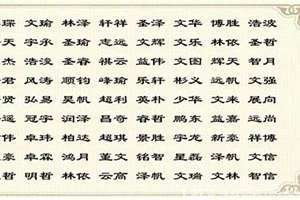 琛 文瑜 林泽 轩祥 圣泽 文华 博胜 浩波
天 宇承 圣瑜 志远 文辉 文乐 林依 圣哲
杰 浩 圣睿 祺云 益伟 文图 辉天 智月
君 风涛 顺钧 峰瑜 乐轩 彬义 远帆 文强
贤 弘易 昊帆 超利 英朴 少华 文来 展向
冠宇 润泽 昌奇 睿哲 鹏东 益嘉 远尚
伟 卓玮 柏达 超琪 景胜 宇龙 新豪 祥博
豪 卓霖 鸿月 董文 铭智 星磊 泽帆 文信
哲 明哲 林依 云高 泽帆 文瑞 文林 智信